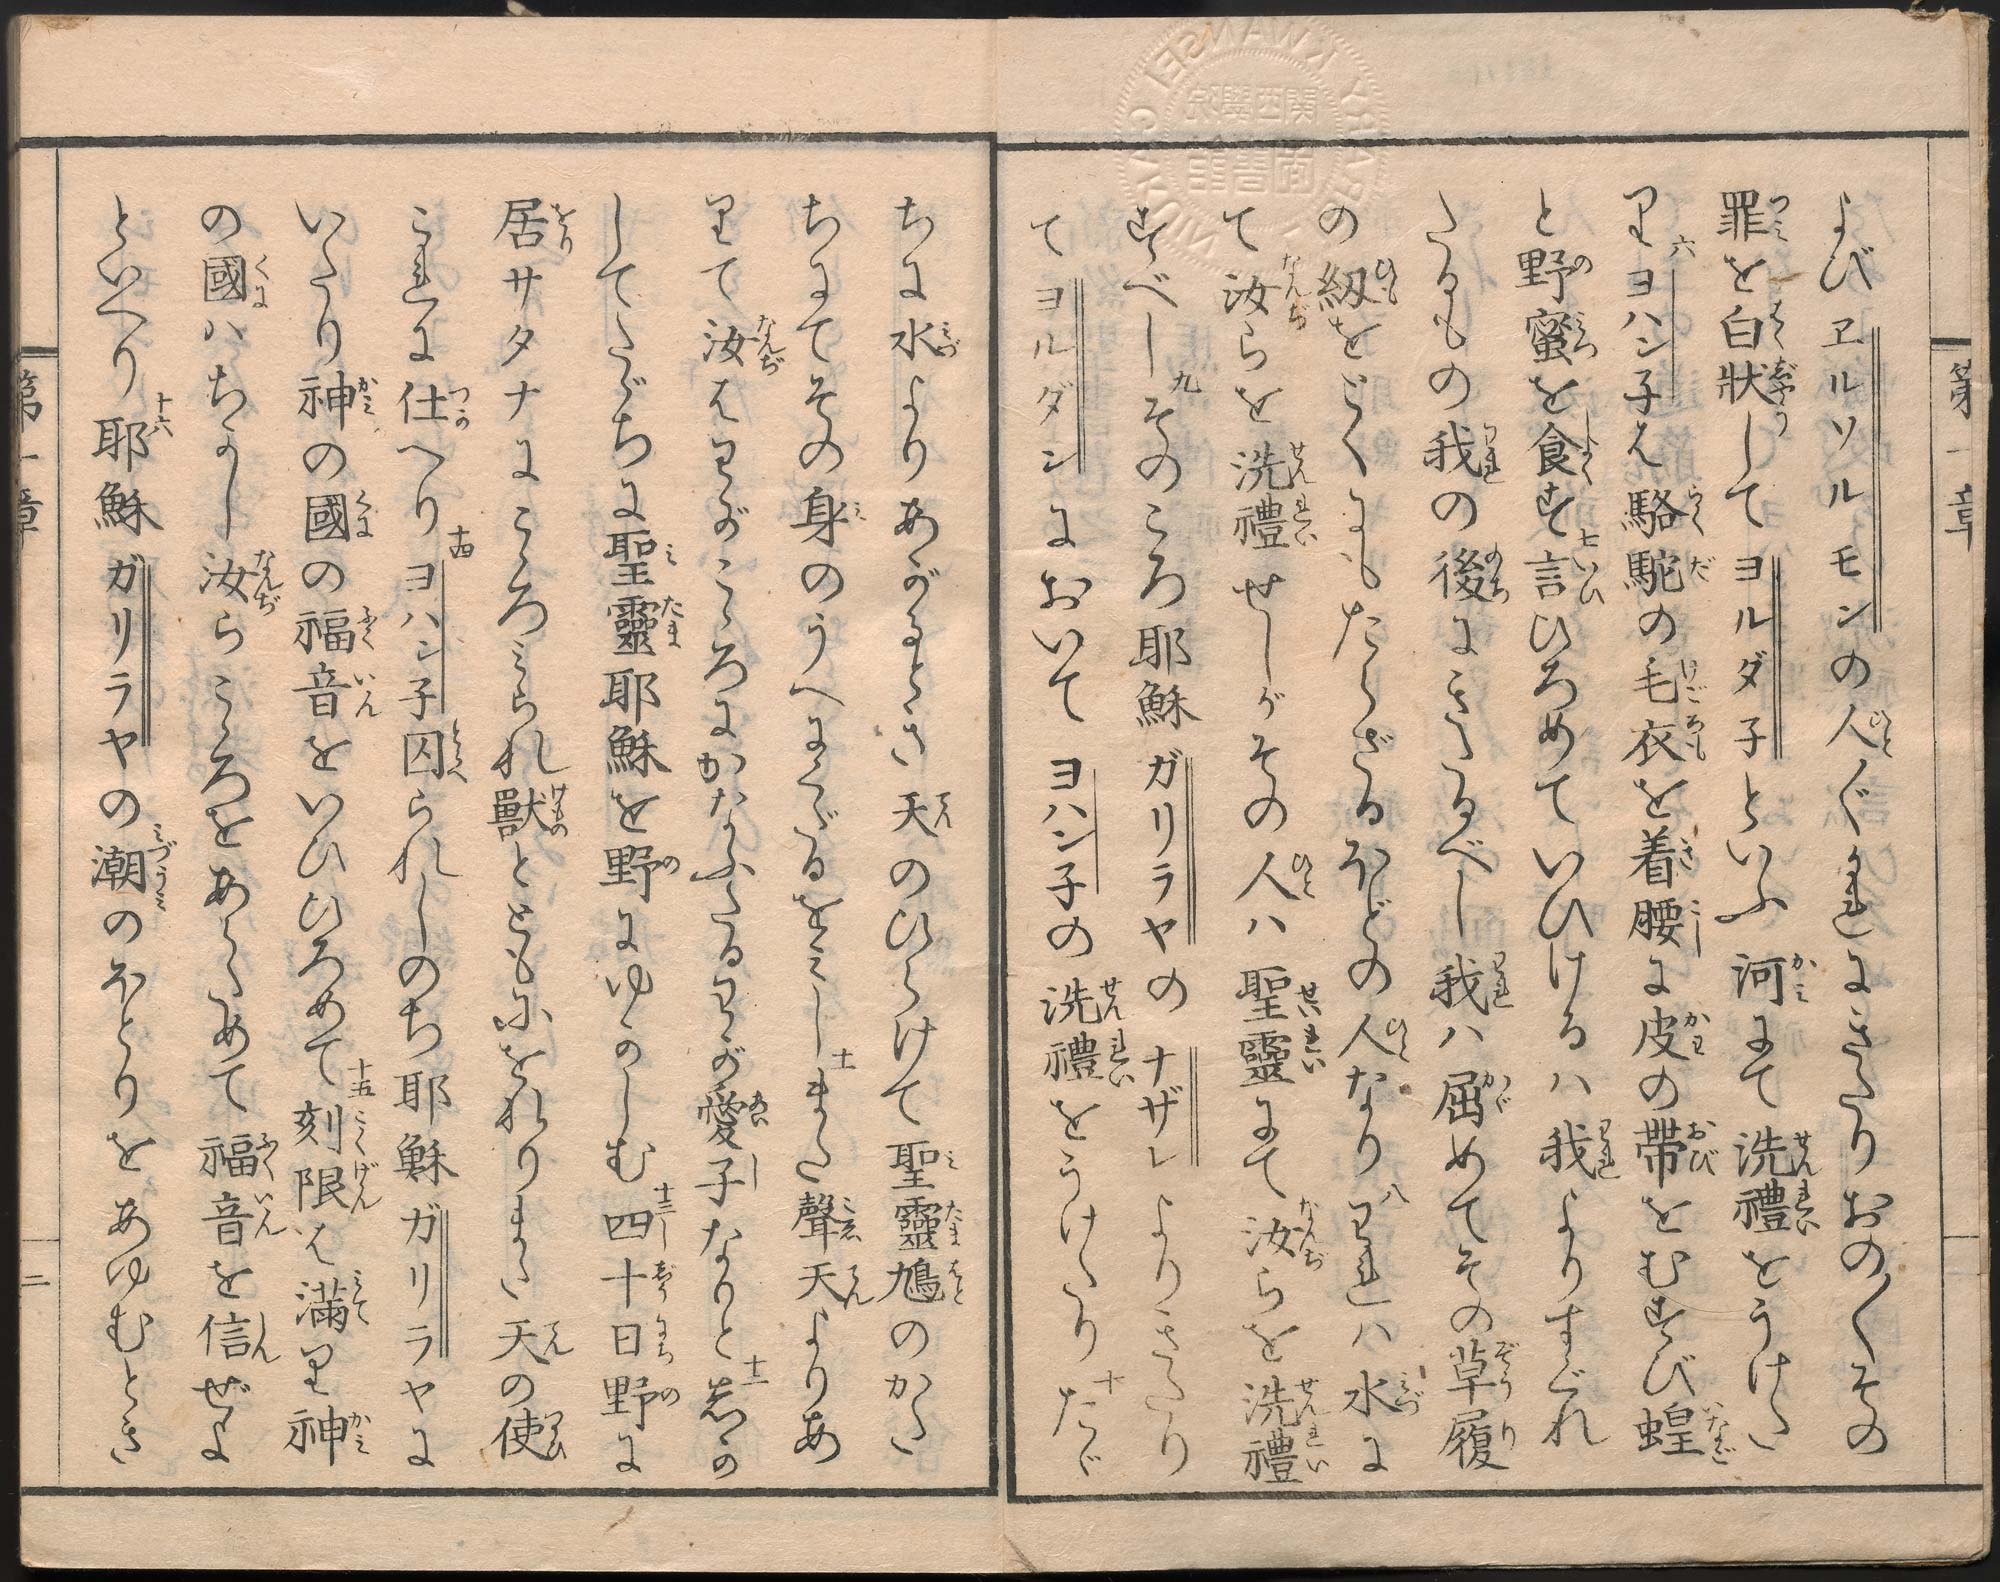 第一章
よびヱルソルモンの人〴〵かれにきたりおの〳〵その
罪を白状してヨルダ子といふ河にて洗禮をうけた
り六ヨハン子は駱駝の毛衣を着腰に皮の帯をむすび蝗
と野蜜を食す七言ひろめていひけるハ我よりすぐれ
たるもの我の後にきたるべし我ハ屈めてその草履
の紉をとくにもたらざるほどの人なり八われハ水に
て汝らを洗禮せしがその人ハ聖靈にて汝らを洗禮
すべし九そのころ耶穌ガリラヤのナザレよりきたり
てヨルダンにおいてヨハン子の洗禮をうけたり十たゞ
ちに水よりあがるとき天のひらけて聖靈鳩のかた
ちにてその身のうへにくだるをみし十一また聲天よりあ
りて汝はわがこゝろにかなふたるわが愛子なりと十二しか
してたゞちに聖靈耶穌を野にゆかしむ十三四十日野に
居サタナにこゝろみられ獸とともにをれりまた天の使
これに仕へり十四ヨハン子囚られしのち耶穌ガリラヤに
いたり神の國の福音をいひひろめて十五刻限は滿り神
の國ハちかし汝らこゝろをあらためて福音を信ぜよ
といへり十六耶穌ガリラヤの潮のほとりをあゆむとき
第一章
二